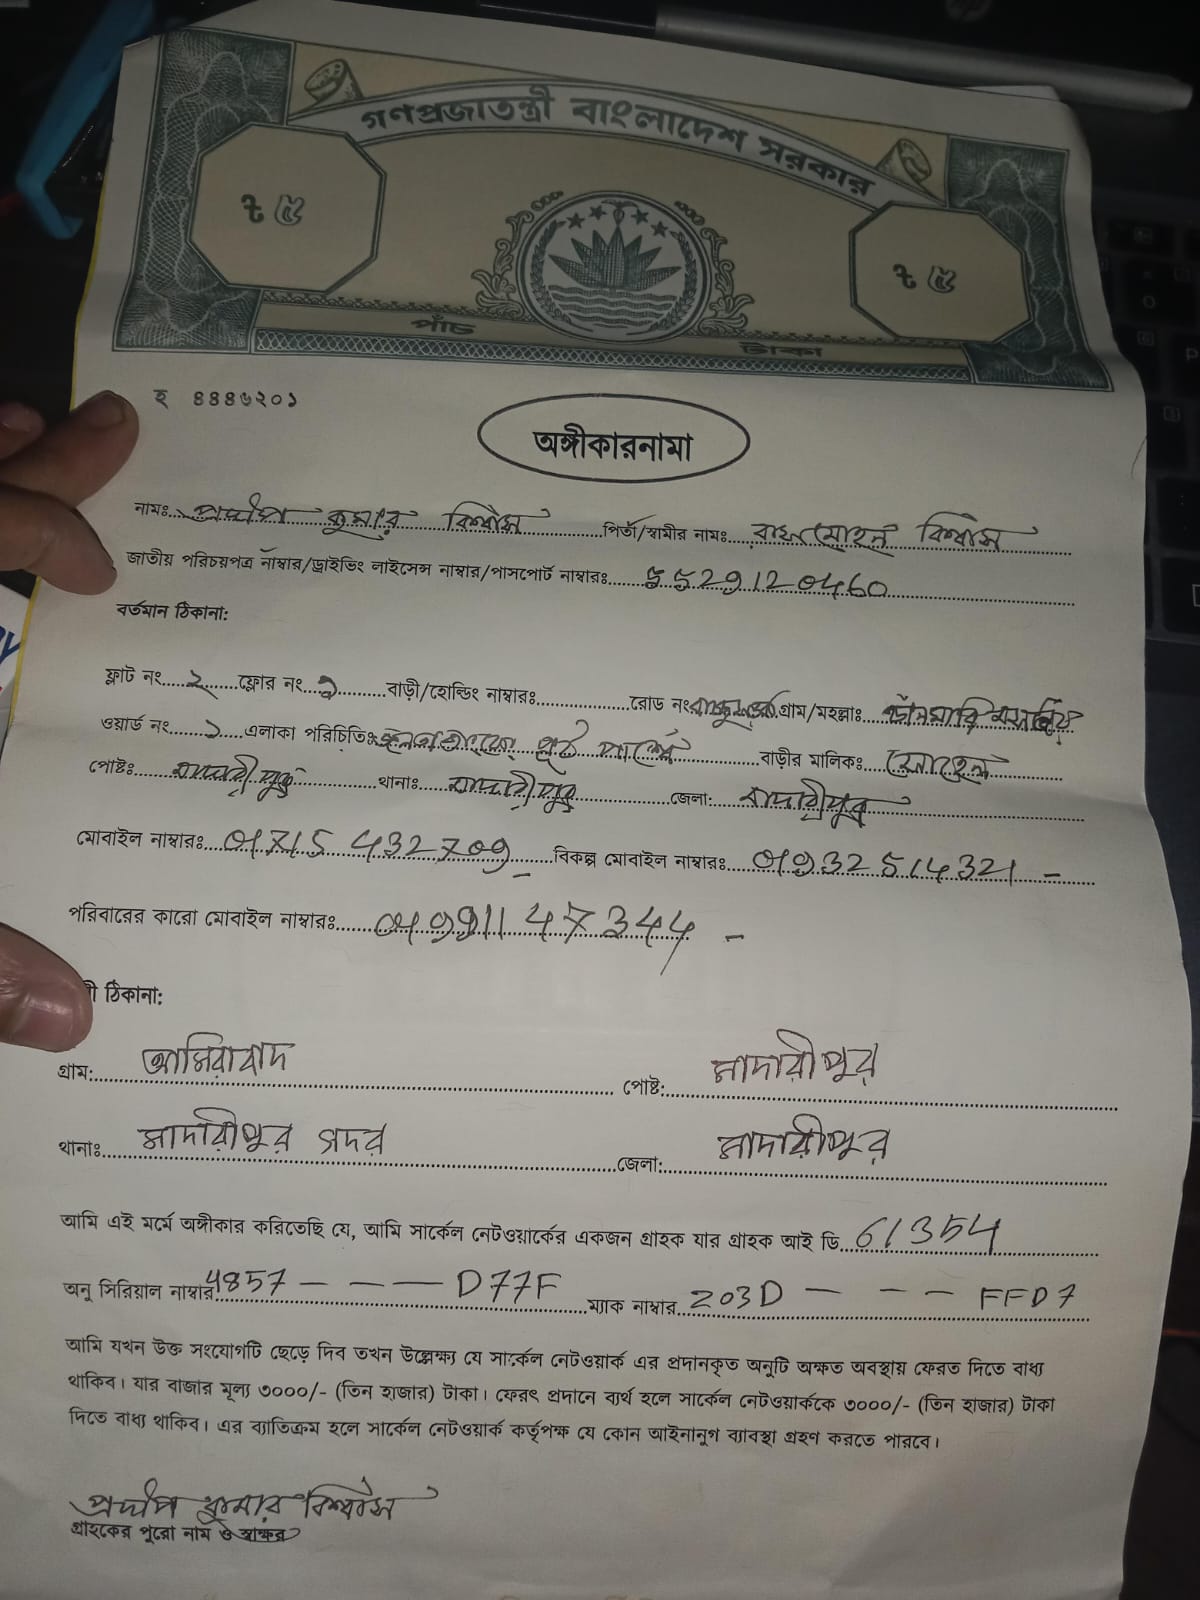 গণপ্রজাতন্ত্রী বাংলাদেশ সরকার
৳ ৫ ৳ ৫
পাঁচ টাকা
হ ৪৪৪৬২০১
অঙ্গীকারনামা
নামঃ প্রদীপ কুমার বিশ্বাস পিতা/স্বামীর নামঃ বিশ্বাস
জাতীয় পরিচয়পত্র নাম্বার/ড্রাইভিং লাইসেন্স নাম্বার/পাসপোর্ট নাম্বারঃ 5529120460
বর্তমান ঠিকানা:
ফ্লাট নং ২ ফ্লোর নং ১ বাড়ী/হোল্ডিং নাম্বারঃ রোড নং গ্রাম/মহল্লাঃ
ওয়ার্ড নং ১ এলাকা পরিচিতিঃ পূর্ব পার্শ্বে বাড়ীর মালিকঃ সোহেল
পোষ্টঃ মাদারীপুর থানাঃ মাদারীপুর জেলা: মাদারীপুর
মোবাইল নাম্বারঃ 01715 432709 বিকল্প মোবাইল নাম্বারঃ 01932514321
পরিবারের কারো মোবাইল নাম্বারঃ 01991147344
ঠিকানা:
গ্রাম: আমিরাবাদ পোষ্ট: মাদারীপুর
থানাঃ মাদারীপুর সদর জেলা: মাদারীপুর
আমি এই মর্মে অঙ্গীকার করিতেছি যে, আমি সার্কেল নেটওয়ার্কের একজন গ্রাহক যার গ্রাহক আই ডি 61354
অনু সিরিয়াল নাম্বার 4857 - - - D77F ম্যাক নাম্বার 203D - - - FFD7
আমি যখন উক্ত সংযোগটি ছেড়ে দিব তখন উল্লেক্ষ্য যে সার্কেল নেটওয়ার্ক এর প্রদানকৃত অনুটি অক্ষত অবস্থায় ফেরত দিতে বাধ্য
থাকিব। যার বাজার মূল্য ৩০০০/- (তিন হাজার) টাকা। ফেরৎ প্রদানে ব্যর্থ হলে সার্কেল নেটওয়ার্ককে ৩০০০/- (তিন হাজার) টাকা
দিতে বাধ্য থাকিব। এর ব্যাতিক্রম হলে সার্কেল নেটওয়ার্ক কর্তৃপক্ষ যে কোন আইনানুগ ব্যাবস্থা গ্রহণ করতে পারবে।
প্রদীপ কুমার বিশ্বাস
গ্রাহকের পুরো নাম ও স্বাক্ষর